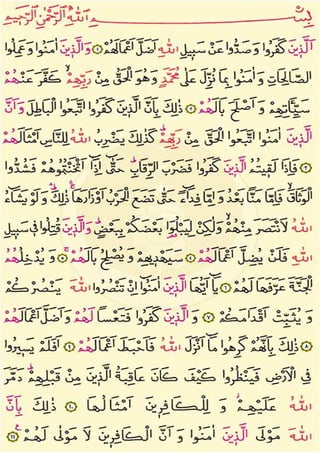 بِسْمِ اللهِ الرَّحْمٰنِ الرَّحِيمِ
اَلَّذِينَ كَفَرُوا وَصَدُّوا عَنْ سَبِيلِ اللهِ اَضَلَّ اَعْمَالَهُمْ ﴿١﴾ وَالَّذِينَ اٰمَنُوا وَعَمِلُوا
الصَّالِحَاتِ وَاٰمَنُوا بِمَا نُزِّلَ عَلٰى مُحَمَّدٍ وَهُوَ الْحَقُّ مِنْ رَبِّهِمْ كَفَّرَ عَنْهُمْ
سَيِّـَٔاتِهِمْ وَاَصْلَحَ بَالَهُمْ ﴿٢﴾ ذٰلِكَ بِاَنَّ الَّذِينَ كَفَرُوا اتَّبَعُوا الْبَاطِلَ وَاَنَّ
الَّذِينَ اٰمَنُوا اتَّبَعُوا الْحَقَّ مِنْ رَبِّهِمْ كَذٰلِكَ يَضْرِبُ اللهُ لِلنَّاسِ اَمْثَالَهُمْ
﴿٣﴾ فَاِذَا لَقِيتُمُ الَّذِينَ كَفَرُوا فَضَرْبَ الرِّقَابِ حَتّٰى اِذَا اَثْخَنْتُمُوهُمْ فَشُدُّوا
الْوَثَاقَ فَاِمَّا مَنًّا بَعْدُ وَاِمَّا فِدَاءً حَتّٰى تَضَعَ الْحَرْبُ اَوْزَارَهَا ذٰلِكَ وَلَوْ يَشَاءُ
اللهُ لَانْتَصَرَ مِنْهُمْ وَلٰكِنْ لِيَبْلُوَا بَعْضَكُمْ بِبَعْضٍ وَالَّذِينَ قُتِلُوا فِي سَبِيلِ
اللهِ فَلَنْ يُضِلَّ اَعْمَالَهُمْ ﴿٤﴾ سَيَهْدِيهِمْ وَيُصْلِحُ بَالَهُمْ ﴿٥﴾ وَيُدْخِلُهُمُ
الْجَنَّةَ عَرَّفَهَا لَهُمْ ﴿٦﴾ يَا اَيُّهَا الَّذِينَ اٰمَنُوا اِنْ تَنْصُرُوا اللهَ يَنْصُرْكُمْ
وَيُثَبِّتْ اَقْدَامَكُمْ ﴿٧﴾ وَالَّذِينَ كَفَرُوا فَتَعْسًا لَهُمْ وَاَضَلَّ اَعْمَالَهُمْ
﴿٨﴾ ذٰلِكَ بِاَنَّهُمْ كَرِهُوا مَا اَنْزَلَ اللهُ فَاَحْبَطَ اَعْمَالَهُمْ ﴿٩﴾ اَفَلَمْ يَسِيرُوا
فِي الْاَرْضِ فَيَنْظُرُوا كَيْفَ كَانَ عَاقِبَةُ الَّذِينَ مِنْ قَبْلِهِمْ دَمَّرَ
اللهُ عَلَيْهِمْ وَلِلْكَافِرِينَ اَمْثَالُهَا ﴿١٠﴾ ذٰلِكَ بِاَنَّ
اللهَ مَوْلَى الَّذِينَ اٰمَنُوا وَاَنَّ الْكَافِرِينَ لَا مَوْلٰى لَهُمْ ﴿١١﴾